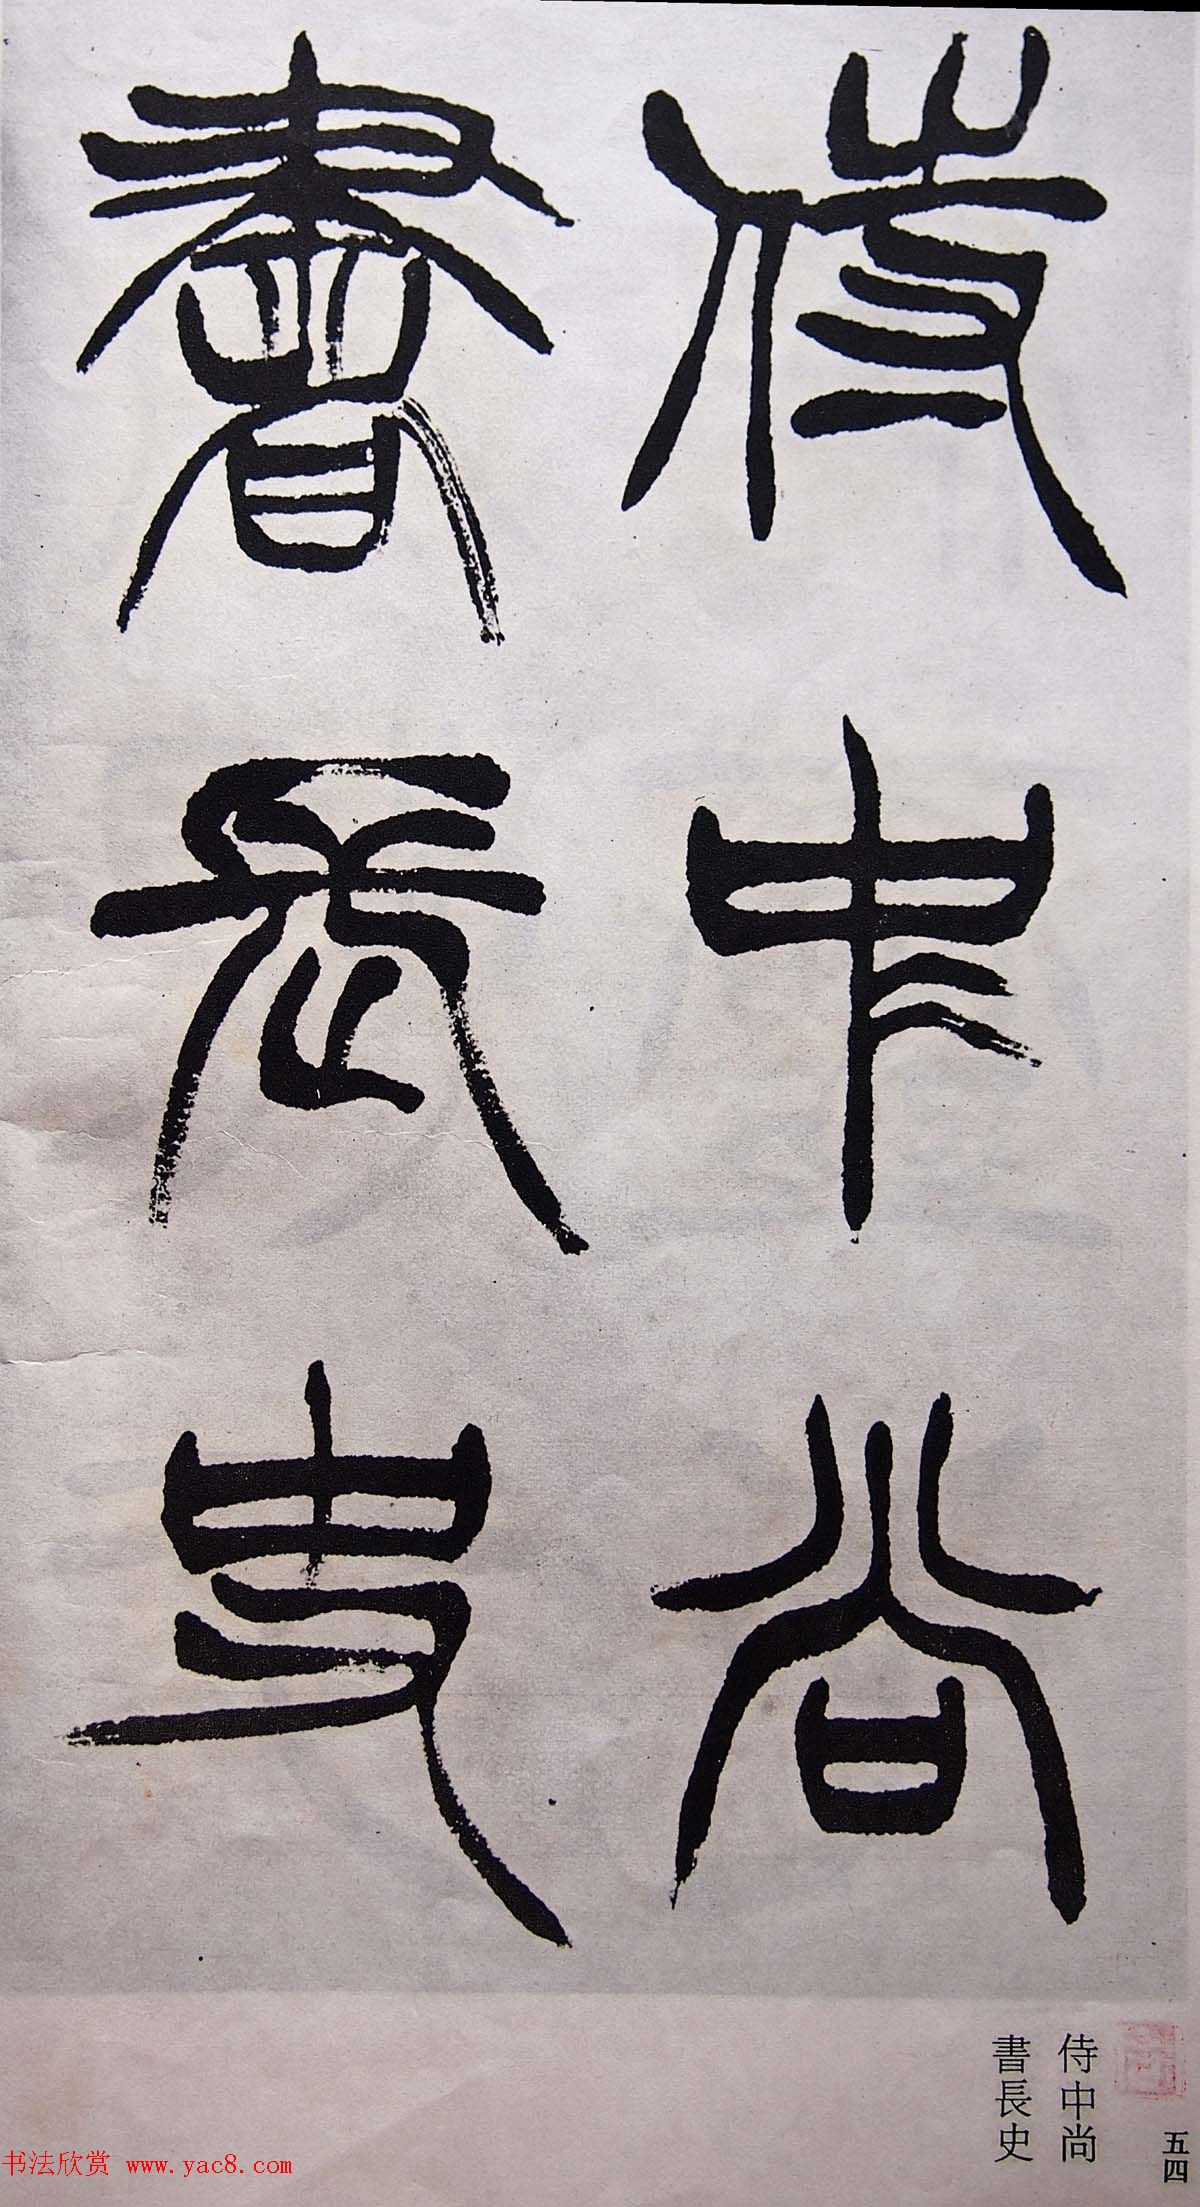 侍中尚
書長史
侍中尚
書長史
五四
书法欣赏 www.yac8.com